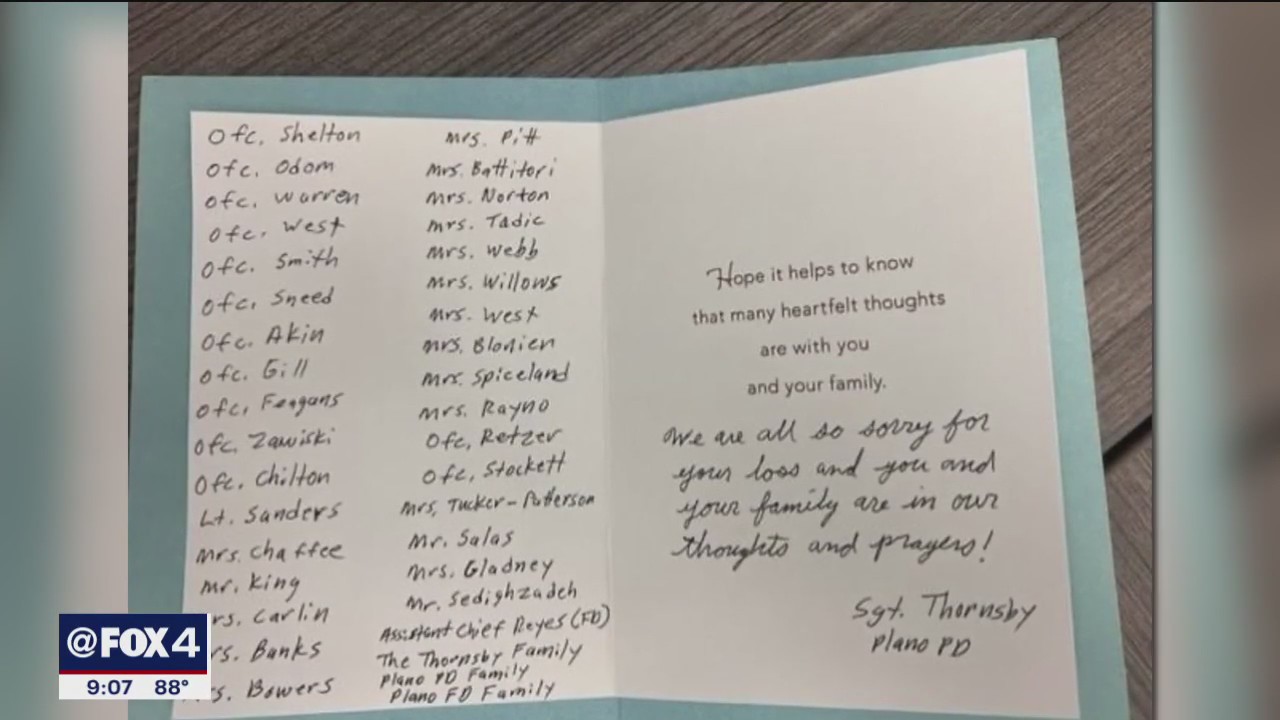 Ofc. Shelton
Ofc. Odom
Ofc. Warren
Ofc. West
Ofc. Smith
Ofc. Sneed
Ofc. Akin
Ofc. Gill
Ofc. Feagans
Ofc. Zawiski
Ofc. Chilton
Lt. Sanders
Mrs. Chaffee
Mr. King
rs. Carlin
rs. Banks
s. Bowers
Mrs. Pitt
Mrs. Battitori
Mrs. Norton
Mrs. Tadic
Mrs. Webb
Mrs. Willows
Mrs. West
Mrs. Blonien
Mrs. Spiceland
Mrs. Rayno
Ofc. Retzer
Ofc. Stockett
Mrs. Tucker-Patterson
Mr. Salas
Mrs. Gladney
Mr. Sedighzadeh
Assistant Chief Reyes (FD)
The Thornsby Family
Plano PD Family
Plano FD Family
Hope it helps to know
that many heartfelt thoughts
are with you
and your family.
We are all so sorry for
your loss and you and
your family are in our
thoughts and prayers!
Sgt. Thornsby
Plano PD
@FOX4
9:07 88°